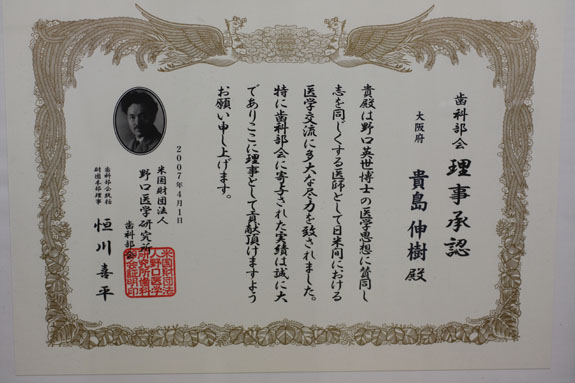 歯科部会 理事承認
大阪府 貴島 伸樹 殿
貴殿は野口英世博士の医学思想に賛同し
志を同じくする医師として日米間における
医学交流に多大な尽力を致されました。
特に歯科部会に寄与された実績は誠に大
でありここに理事として貢献頂けますよう
お願い申し上げます。
2007年4月1日
米国財団法人
野口医学研究所
歯科部会
歯科部会総括
財団本部理事
恒川 喜平
米国財団法
人野口医学
研究所歯科
部会証明印